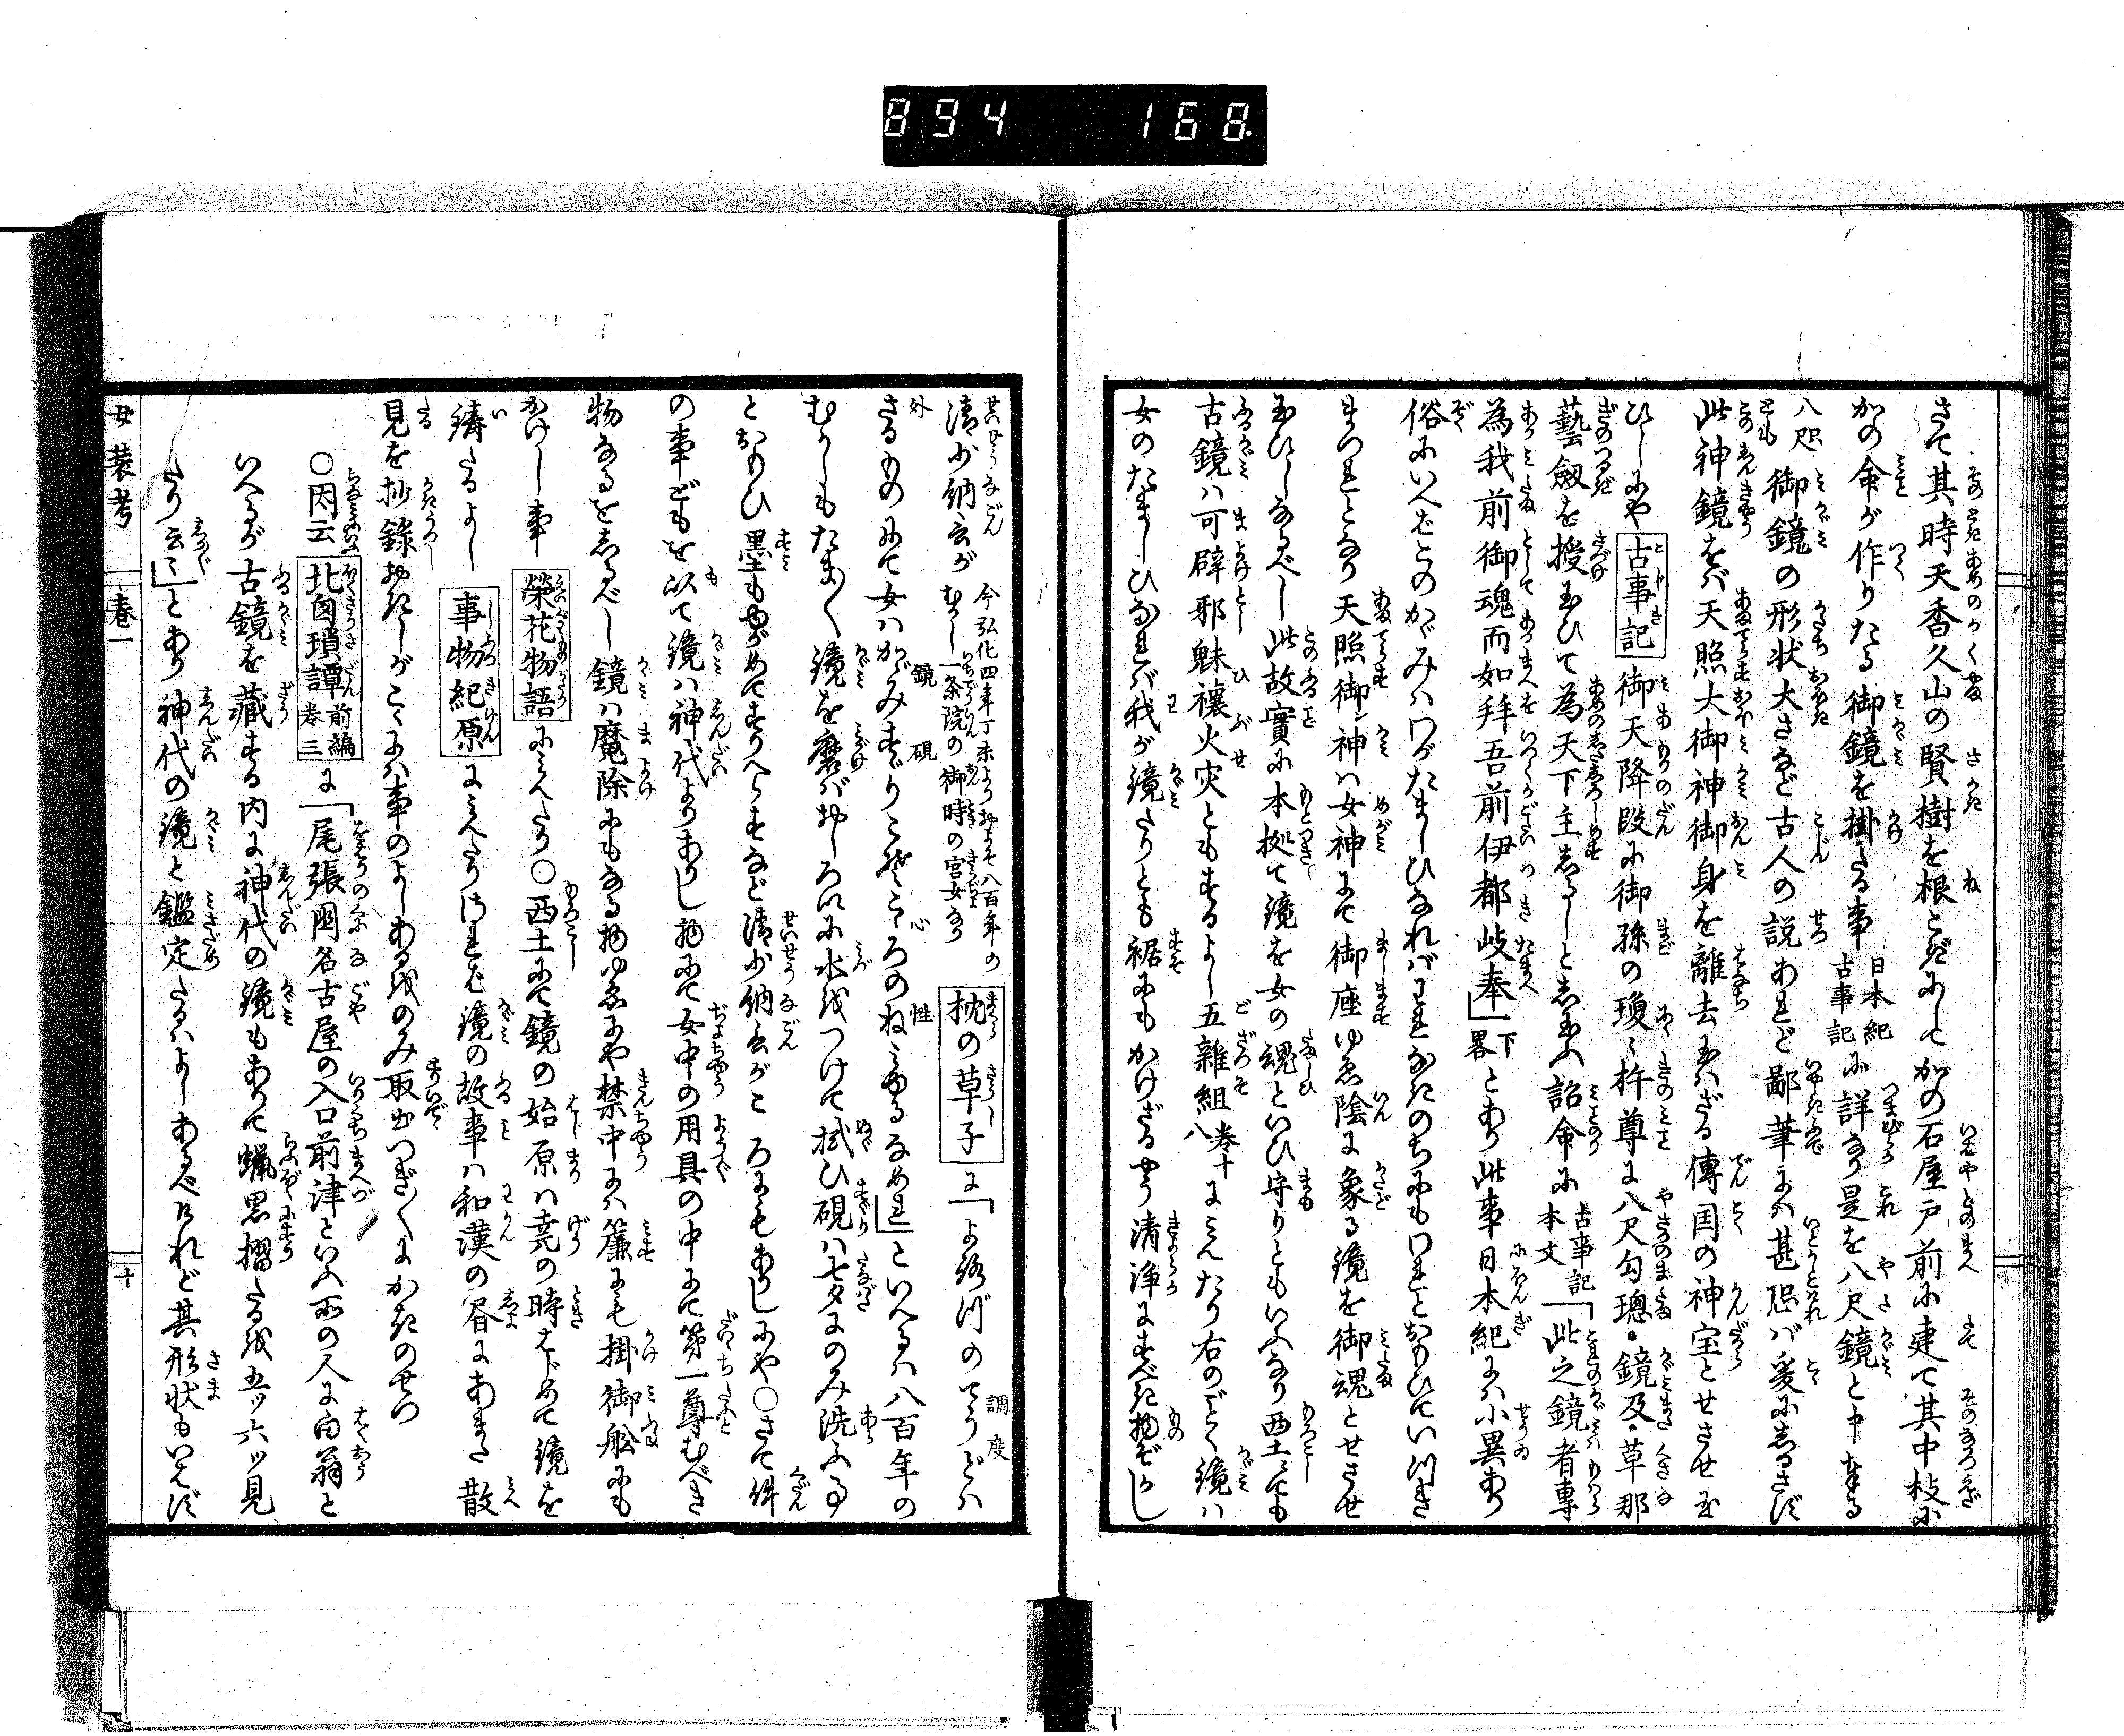 894 168.
さて其時天香久山の賢樹を根こぎにしてかの石屋戸前に建て其中枝に
かの命が作りたる御鏡を掛たる事日本紀古事記に詳なり是を八尺鏡と申奉る
八咫とも御鏡の形状大さなど古人の説あれど鄙筆には甚恐れバ爰にしるさず
此神鏡をバ天照大御神御身を離去玉ハざる傳国の神宝とせさせ玉
ひしにや古事記御天降段に御孫の瓊々杵尊に八尺勾璁・鏡及・草那
藝劔を授玉ひて為天下主しるしと志玉ふ詔命に古事記本文「此之鏡者専
為我前御魂而如拜吾前伊都岐奉」下畧とあり此事日本紀にハ小異あり
俗にいへばこのかゞみハわがたましひなれバわれなきのちにもわれとおもひていつき
まつれとなり天照御ン神ハ女神にて御座ゆゑ陰に象る鏡を御魂とせさせ
玉ひしなるべし此故實に本拠て鏡を女の魂といひ守りともいふなり西土にても
古鏡ハ可辟邪魅禳火災ともするよし五雑組巻十八にみえたり右のごとく鏡ハ
女のたましひなれバ我が鏡たりとも裾にもかけざるやう清浄にすべき物ぞかし
清少納言が今弘化四年丁未よりおよそ八百年のむかし一条院の御時の宮女なり枕の草子に「よろづのてうどハ
さるものにて女ハかゞみすゞりこそこゝろのね見ゆるなめれ」といへるハ八百年の
むかしもたま〳〵鏡を磨バおしろいに水をつけて拭ひ硯ハ七夕にのみ洗ふ事
とおもひ墨もゆがめてすりへらすなど清少納言がこゝろにもありしにや○さて件
の事どもを以て鏡ハ神代よりありし物にて女中の用具の中にて第一尊むべき
物なるをしるべし鏡ハ魔除にもなる物ゆゑにや禁中にハ簾にも掛御舩にも
かけし事榮花物語にみえたり○西土にて鏡の始原ハ尭の時はじめて鏡を
鑄たるよし事物紀原にみえたりされど鏡の故事ハ和漢の書にあまた散
見を抄録おきしがこゝにハ事のよしあるをのみ取出つぎ〳〵にかきのせつ
○因云北窓瑣譚前編巻三に「尾張国名古屋の入口前津といふ所の人に白翁と
いへるが古鏡を藏する内に神代の鏡もありて蝋黒摺たるを五ッ六ッ見
たり云々」とあり神代の鏡と鑑定たるハよしあるべけれど其形状もいはず
女装考 巻一 十